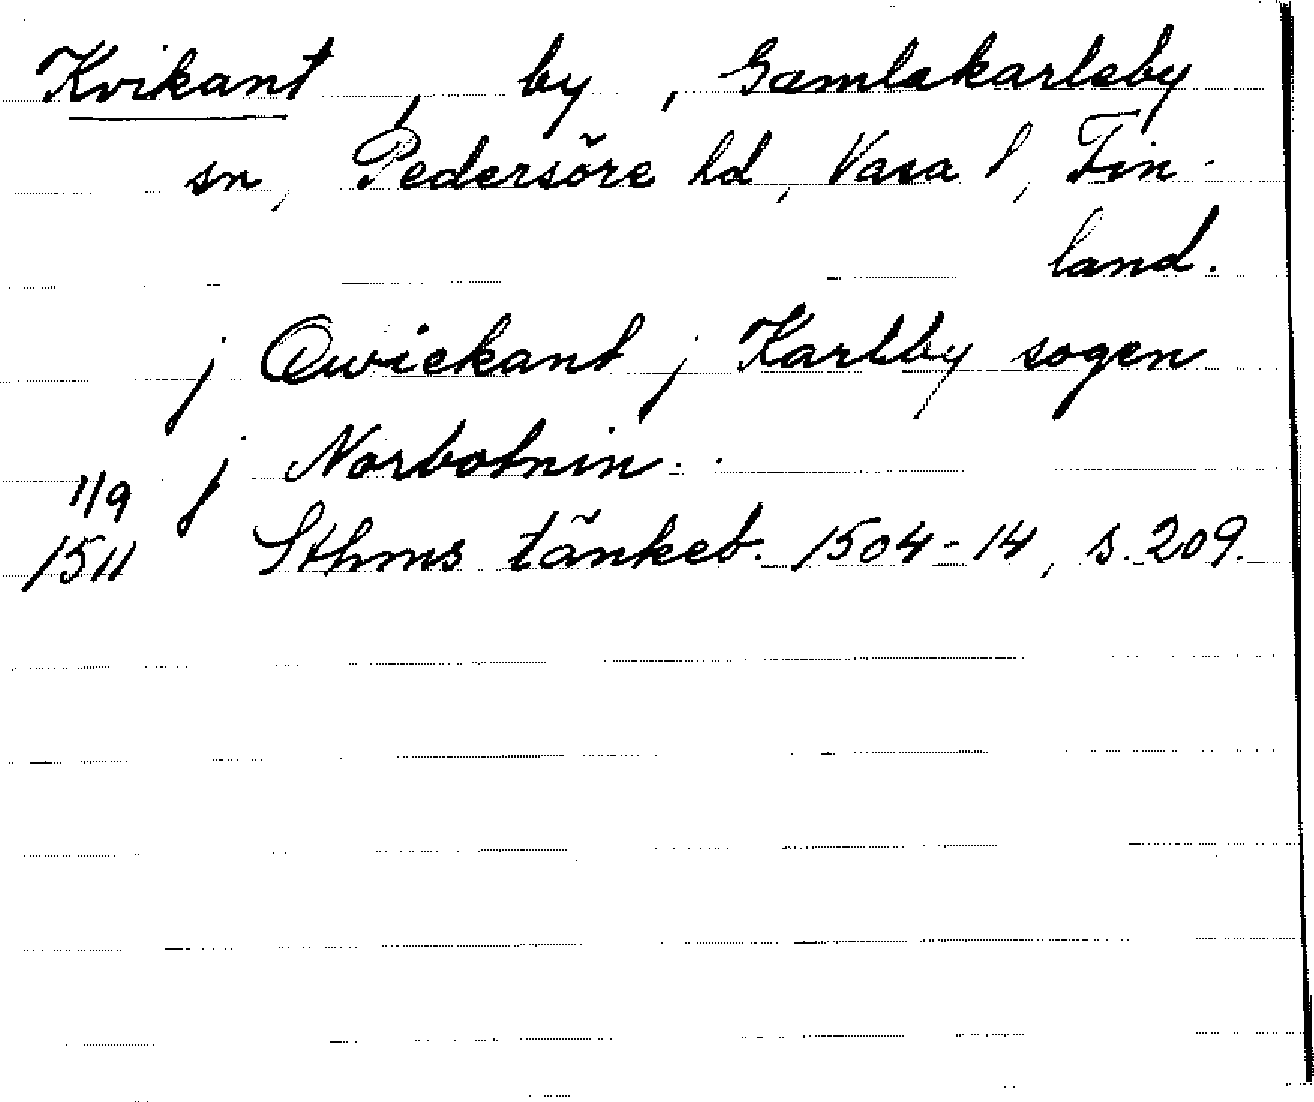 Kvikant , by , Gamlakarleby
sn, Pedersöre hd, Vasa l, Fin-
land.
j Qwickant j Karlby sogen
j Norbotnin..
1/9
1511 Sthms tänkeb. 1504-14, s. 209.